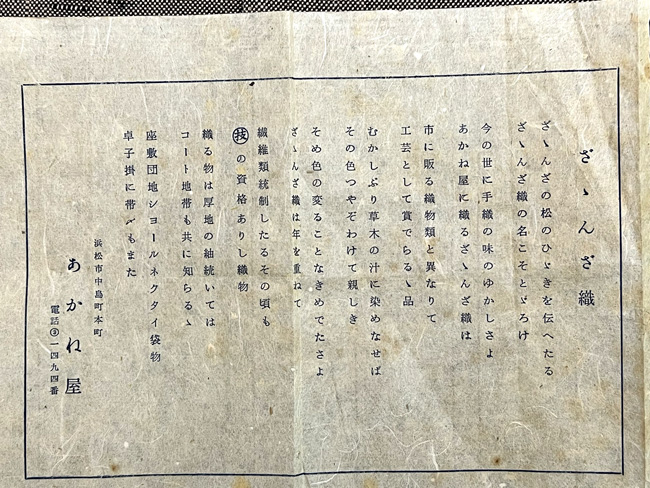 ざゝんざ織
ざゝんざの松のひゞきを伝へたる
ざゝんざ織の名こそとゞろけ
今の世に手織の味のゆかしさよ
あかね屋に織るざゝんざ織は
市に販る織物類と異なりて
工芸として賞でらるゝ品
むかしぶり草木の汁に染めなせば
その色つやぞわけて親しき
そめ色の変ることなきめでたさよ
ざゝんざ織は年を重ねて
繊維類統制したるその頃も
㊙の資格ありし織物
織る物は厚地の紬続いては
コート地帯も共に知らるゝ
座敷団地シヨールネクタイ袋物
卓子掛に帯〆もまた
浜松市中島町本町
あかね屋
電話③一四九四番